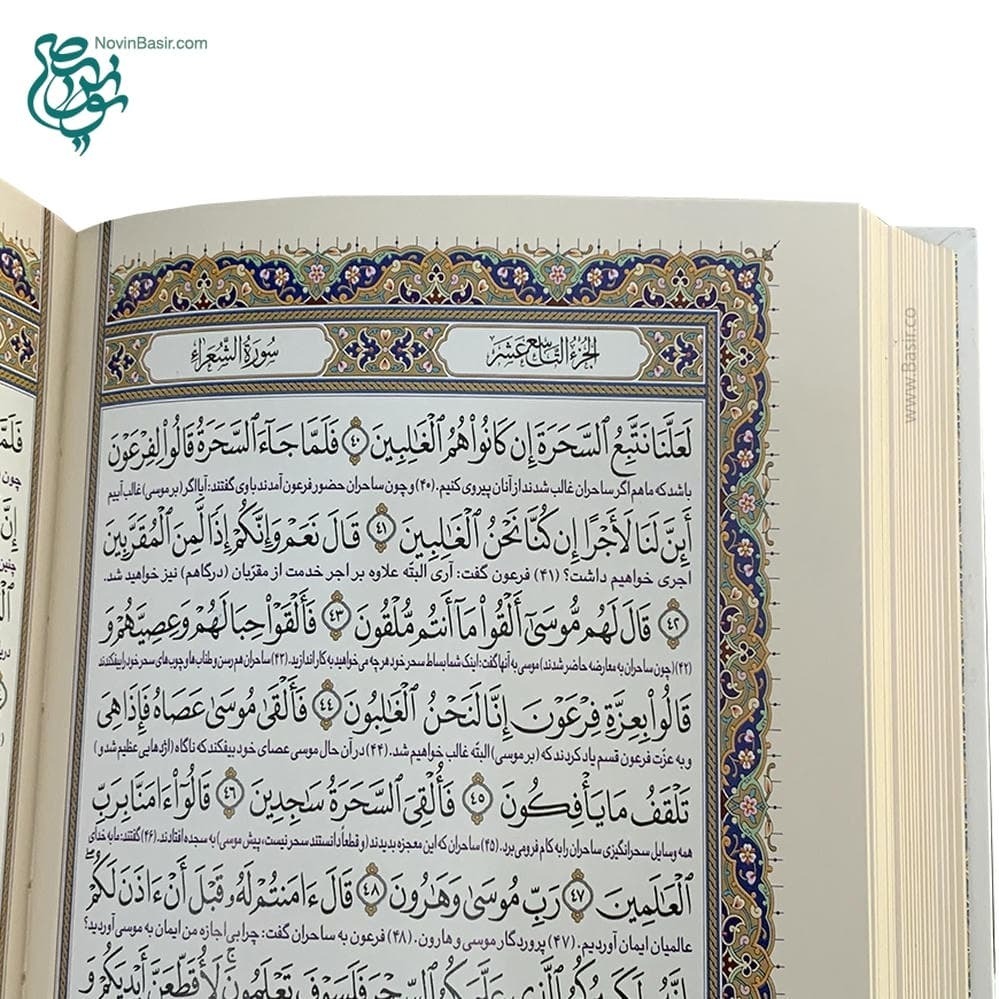 NovinBasir.com
www.Basir.co
الجزء التاسع عشر
سورة الشعراء
لَعَلَّنَا نَتَّبِعُ ٱلسَّحَرَةَ إِن كَانُوا۟ هُمُ ٱلْغَـٰلِبِينَ ﴿٤٠﴾ فَلَمَّا جَآءَ ٱلسَّحَرَةُ قَالُوا۟ لِفِرْعَوْنَ
باشد که ما هم اگر ساحران غالب شدند از آنان پیروی کنیم. (۴۰) و چون ساحران حضور فرعون آمدند با وی گفتند: آیا اگر (بر موسی) غالب آییم
أَئِنَّ لَنَا لَأَجْرًا إِن كُنَّا نَحْنُ ٱلْغَـٰلِبِينَ ﴿٤١﴾ قَالَ نَعَمْ وَإِنَّكُمْ إِذًا لَّمِنَ ٱلْمُقَرَّبِينَ
اجری خواهیم داشت؟ (۴۱) فرعون گفت: آری البتّه علاوه بر اجر خدمت از مقرّبان (درگاهم) نیز خواهید شد.
﴿٤٢﴾ قَالَ لَهُم مُّوسَىٰٓ أَلْقُوا۟ مَآ أَنتُم مُّلْقُونَ ﴿٤٣﴾ فَأَلْقَوْا۟ حِبَالَهُمْ وَعِصِيَّهُمْ وَ
(۴۲) (چون ساحران به معارضه حاضر شدند) موسی به آنها گفت: اینک شما بساط سحر خود هر چه می‌خواهید به کار اندازید. (۴۳) ساحران هم رسن و طنابها و چوب‌های سحر خود را بیفکندند
قَالُوا۟ بِعِزَّةِ فِرْعَوْنَ إِنَّا لَنَحْنُ ٱلْغَـٰلِبُونَ ﴿٤٤﴾ فَأَلْقَىٰ مُوسَىٰ عَصَاهُ فَإِذَا هِىَ
و به عزّت فرعون قسم یاد کردند که (بر موسی) البتّه غالب خواهیم شد. (۴۴) در آن حال موسی عصای خود بیفکند که ناگاه (اژدهایی عظیم شد و)
تَلْقَفُ مَا يَأْفِكُونَ ﴿٤٥﴾ فَأُلْقِىَ ٱلسَّحَرَةُ سَـٰجِدِينَ ﴿٤٦﴾ قَالُوٓا۟ ءَامَنَّا بِرَبِّ
همه وسایل سحرانگیزی ساحران را به کام فرو می‌برد. (۴۵) ساحران که این معجزه بدیدند (و قطعاً دانستند سحر نیست، پیش موسی) به سجده افتادند. (۴۶) گفتند: ما به خدای
ٱلْعَـٰلَمِينَ ﴿٤٧﴾ رَبِّ مُوسَىٰ وَهَـٰرُونَ ﴿٤٨﴾ قَالَ ءَامَنتُمْ لَهُۥ قَبْلَ أَنْ ءَاذَنَ لَكُمْ ۖ
عالمیان ایمان آوردیم. (۴۷) پروردگار موسی و هارون. (۴۸) فرعون به ساحران گفت: چرا بی‌اجازه من ایمان به موسی آوردید؟
إِنَّهُۥ لَكَبِيرُكُمُ ٱلَّذِى عَلَّمَكُمُ ٱلسِّحْرَ فَلَسَوْفَ تَعْلَمُونَ ۚ لَأُقَطِّعَنَّ أَيْدِيَكُمْ وَ